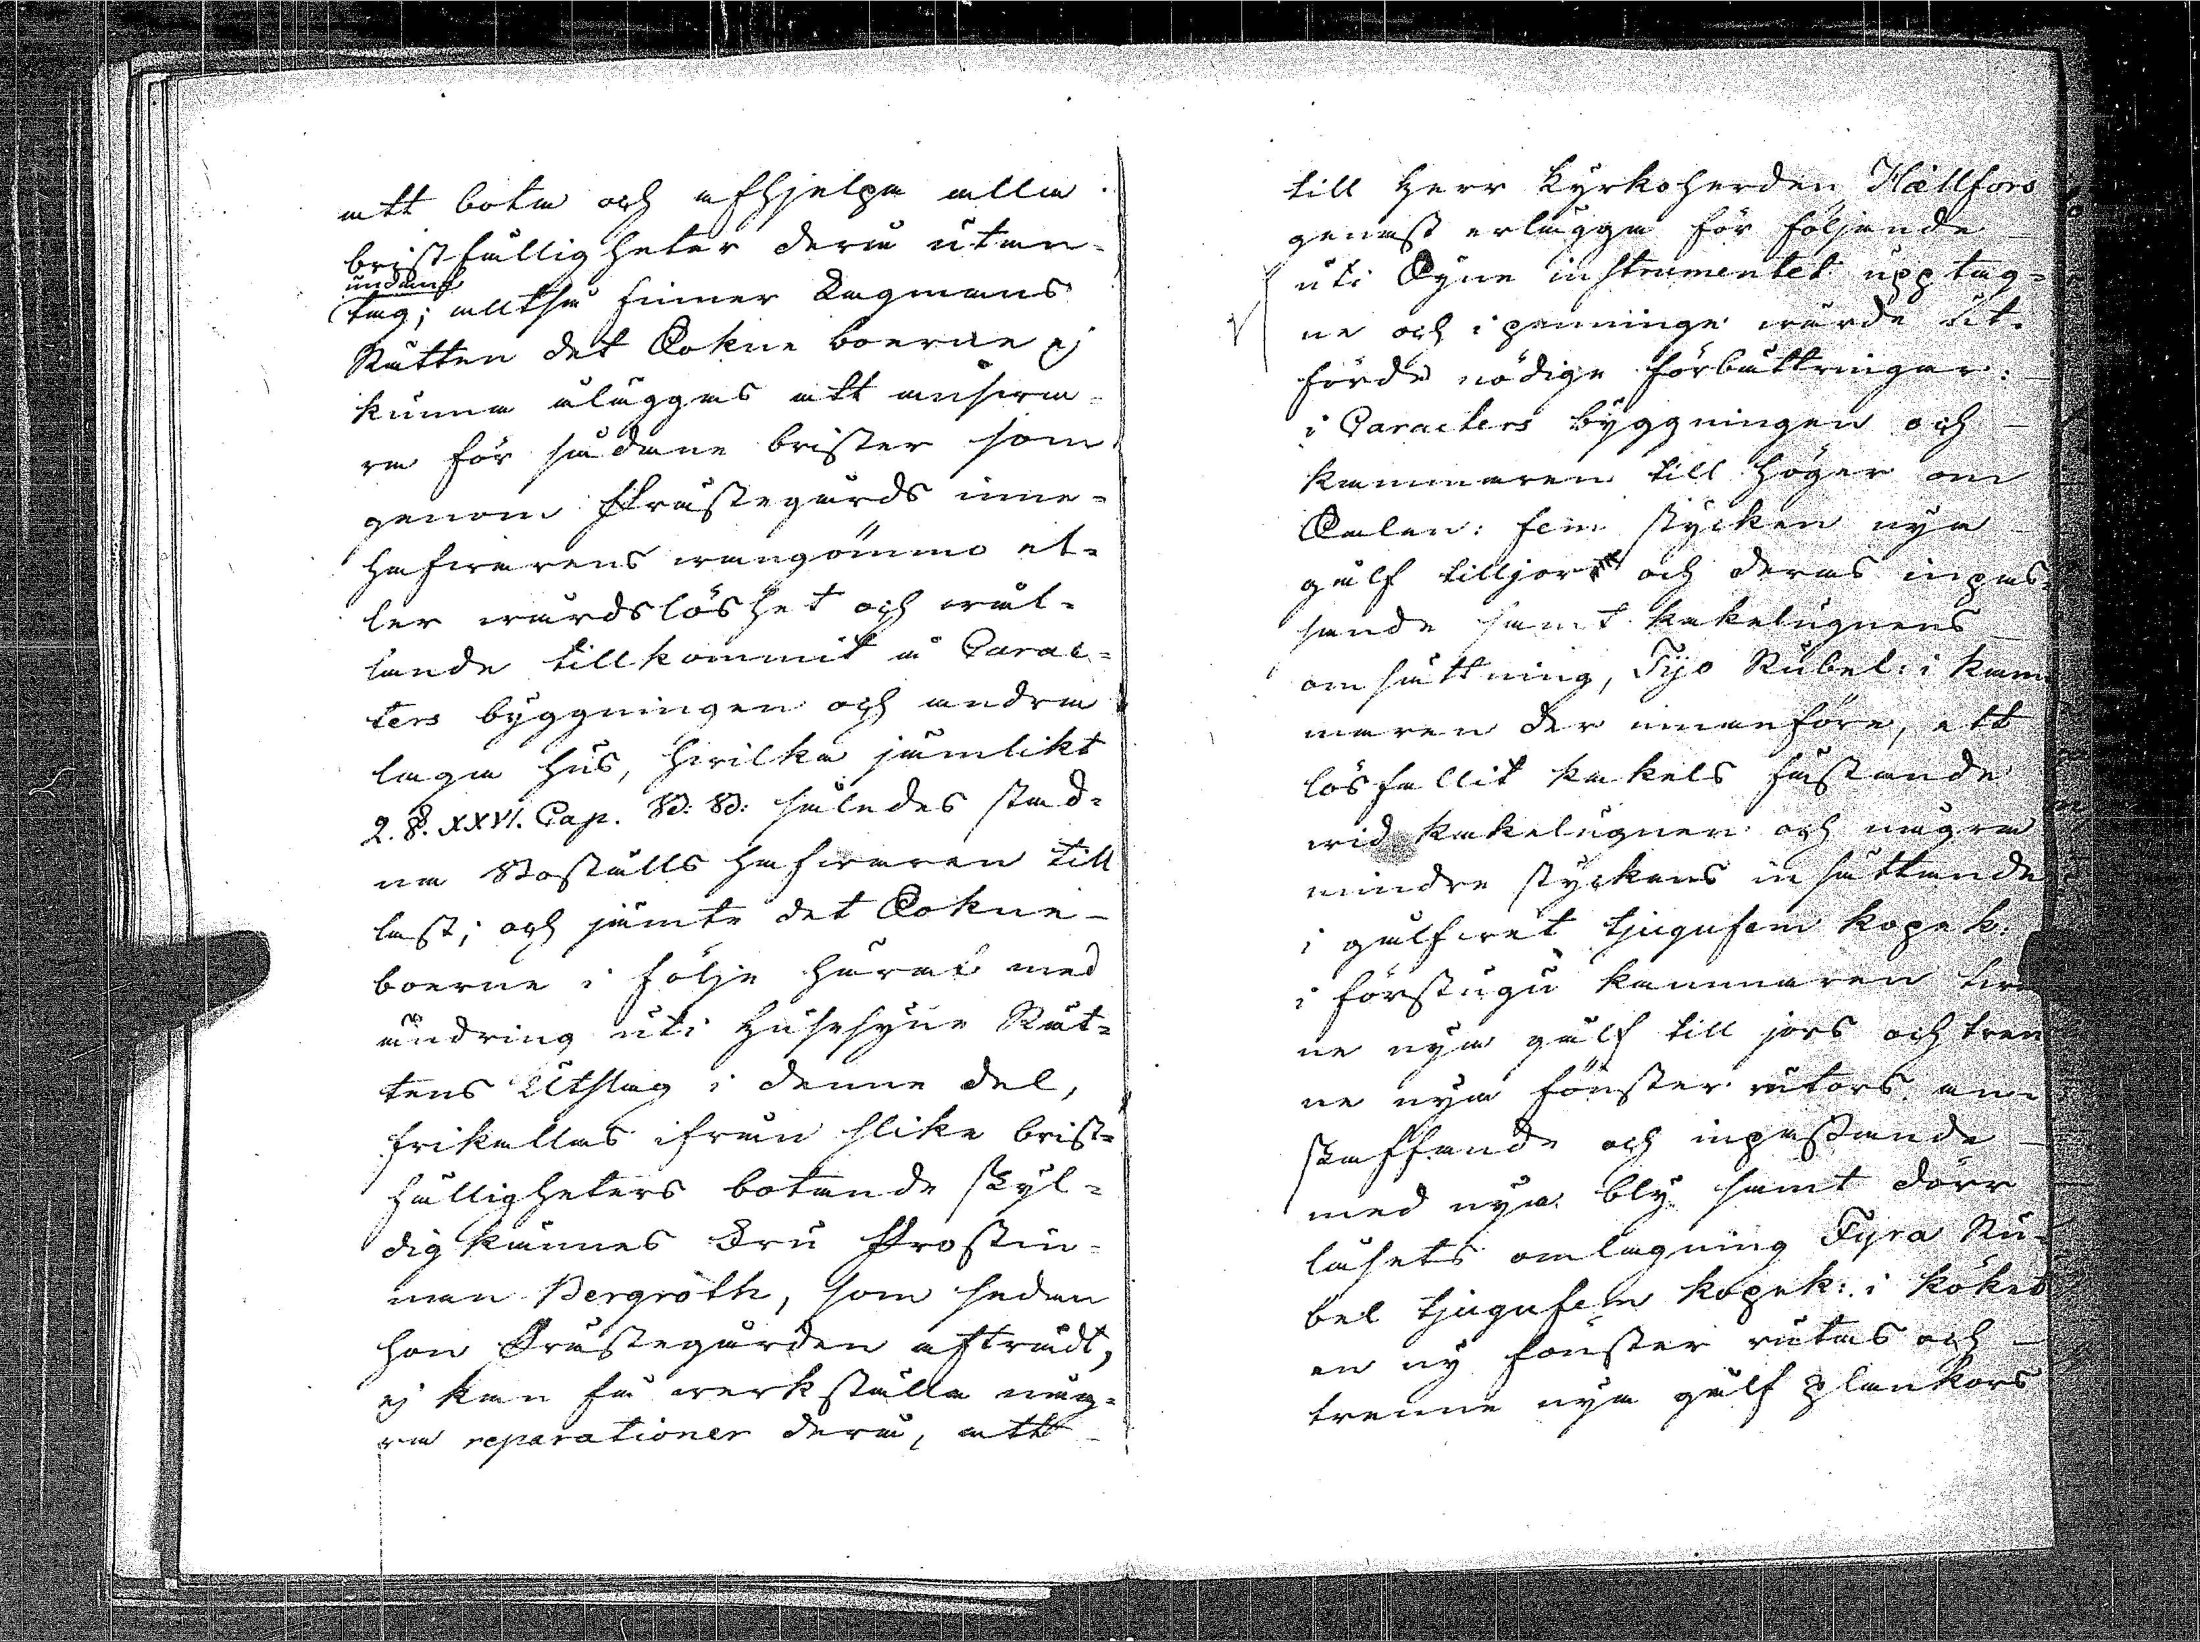 att bota och afhjelpa alla
bristfälligheter derå utan
undanf
tag; alltså finner Lagmans
Rätten det Sokne boerne ej
kunna åläggas att answa-
ra för sådane brister som
genom Præstegårds inne-
hafwarens wangömmo el-
ler wårdslöshet och wål-
lande tillkommit å Carac-
ters byggningen och andra
laga hus, hwilka jämlikt
2. §. XXVI. Cap. B: B: således stad-
na Boställs hafwaren till
last; och jämte det Sokne-
boerne i följe häraf med
ändring uti Husesyne Rät-
tens Utslag i denne del,
frikallas ifrån slika brist-
fälligheters botande skyl-
dig kännes Fru Prostin-
nan Bergroth, som sedan
hon Præstegården afträdt,
ej kan få werkställa någ-
ra reparationer derå, att
till Herr Kyrkoherden Hællfors
genast erlägga för följande
uti Syne instrumentet upptag-
ne och i penninge wärde ut-
förde nödige förbättringar:
i Caracters byggningen och
kammaren till höger om
Salen: fem stycken nya
gålf tilljor och deras inpas-
sande samt kakelugnens
omsättning, Tijo Rubel: i kam
maren der innanföre, ett
lösfallit kakels fästande
wid kakelugnen och några
mindre styckens insättande
i gålfwet tjugufem kopek:
i förstugu kammaren twe
ne nya gålf till jors och tren
ne nya fönster rutors an-
skaffande och inpassande
med nya bly samt dörr
låsets omlagning Fyra Ru-
bel tjugufem kopek: i köket
en ny fönster rutas och
trenne nya gålf plankors